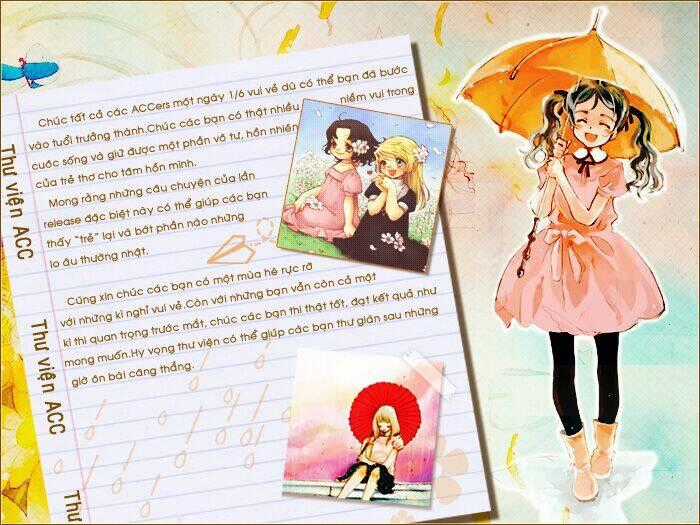 Chúc tất cả các ACCers một ngày 1/6 vui vẻ dù có thể bạn đã bước
vào tuổi trưởng thành.Chúc các bạn có thật nhiều niềm vui trong
cuộc sống và giữ được một phần vô tư, hồn nhiên
của trẻ thơ cho tâm hồn mình.
Mong rằng những câu chuyện của lần
release đặc biệt này có thể giúp các bạn
thấy "trẻ" lại và bớt phần nào những
lo âu thường nhật.
Cũng xin chúc các bạn có một mùa hè rực rỡ
với những kì nghỉ vui vẻ.Còn với những bạn vẫn còn cả một
kì thi quan trọng trước mắt, chúc các bạn thi thật tốt, đạt kết quả như
mong muốn.Hy vọng thư viện có thể giúp các bạn thư giãn sau những
giờ ôn bài căng thẳng.
Thư viện ACC
Thư viện ACC
Th